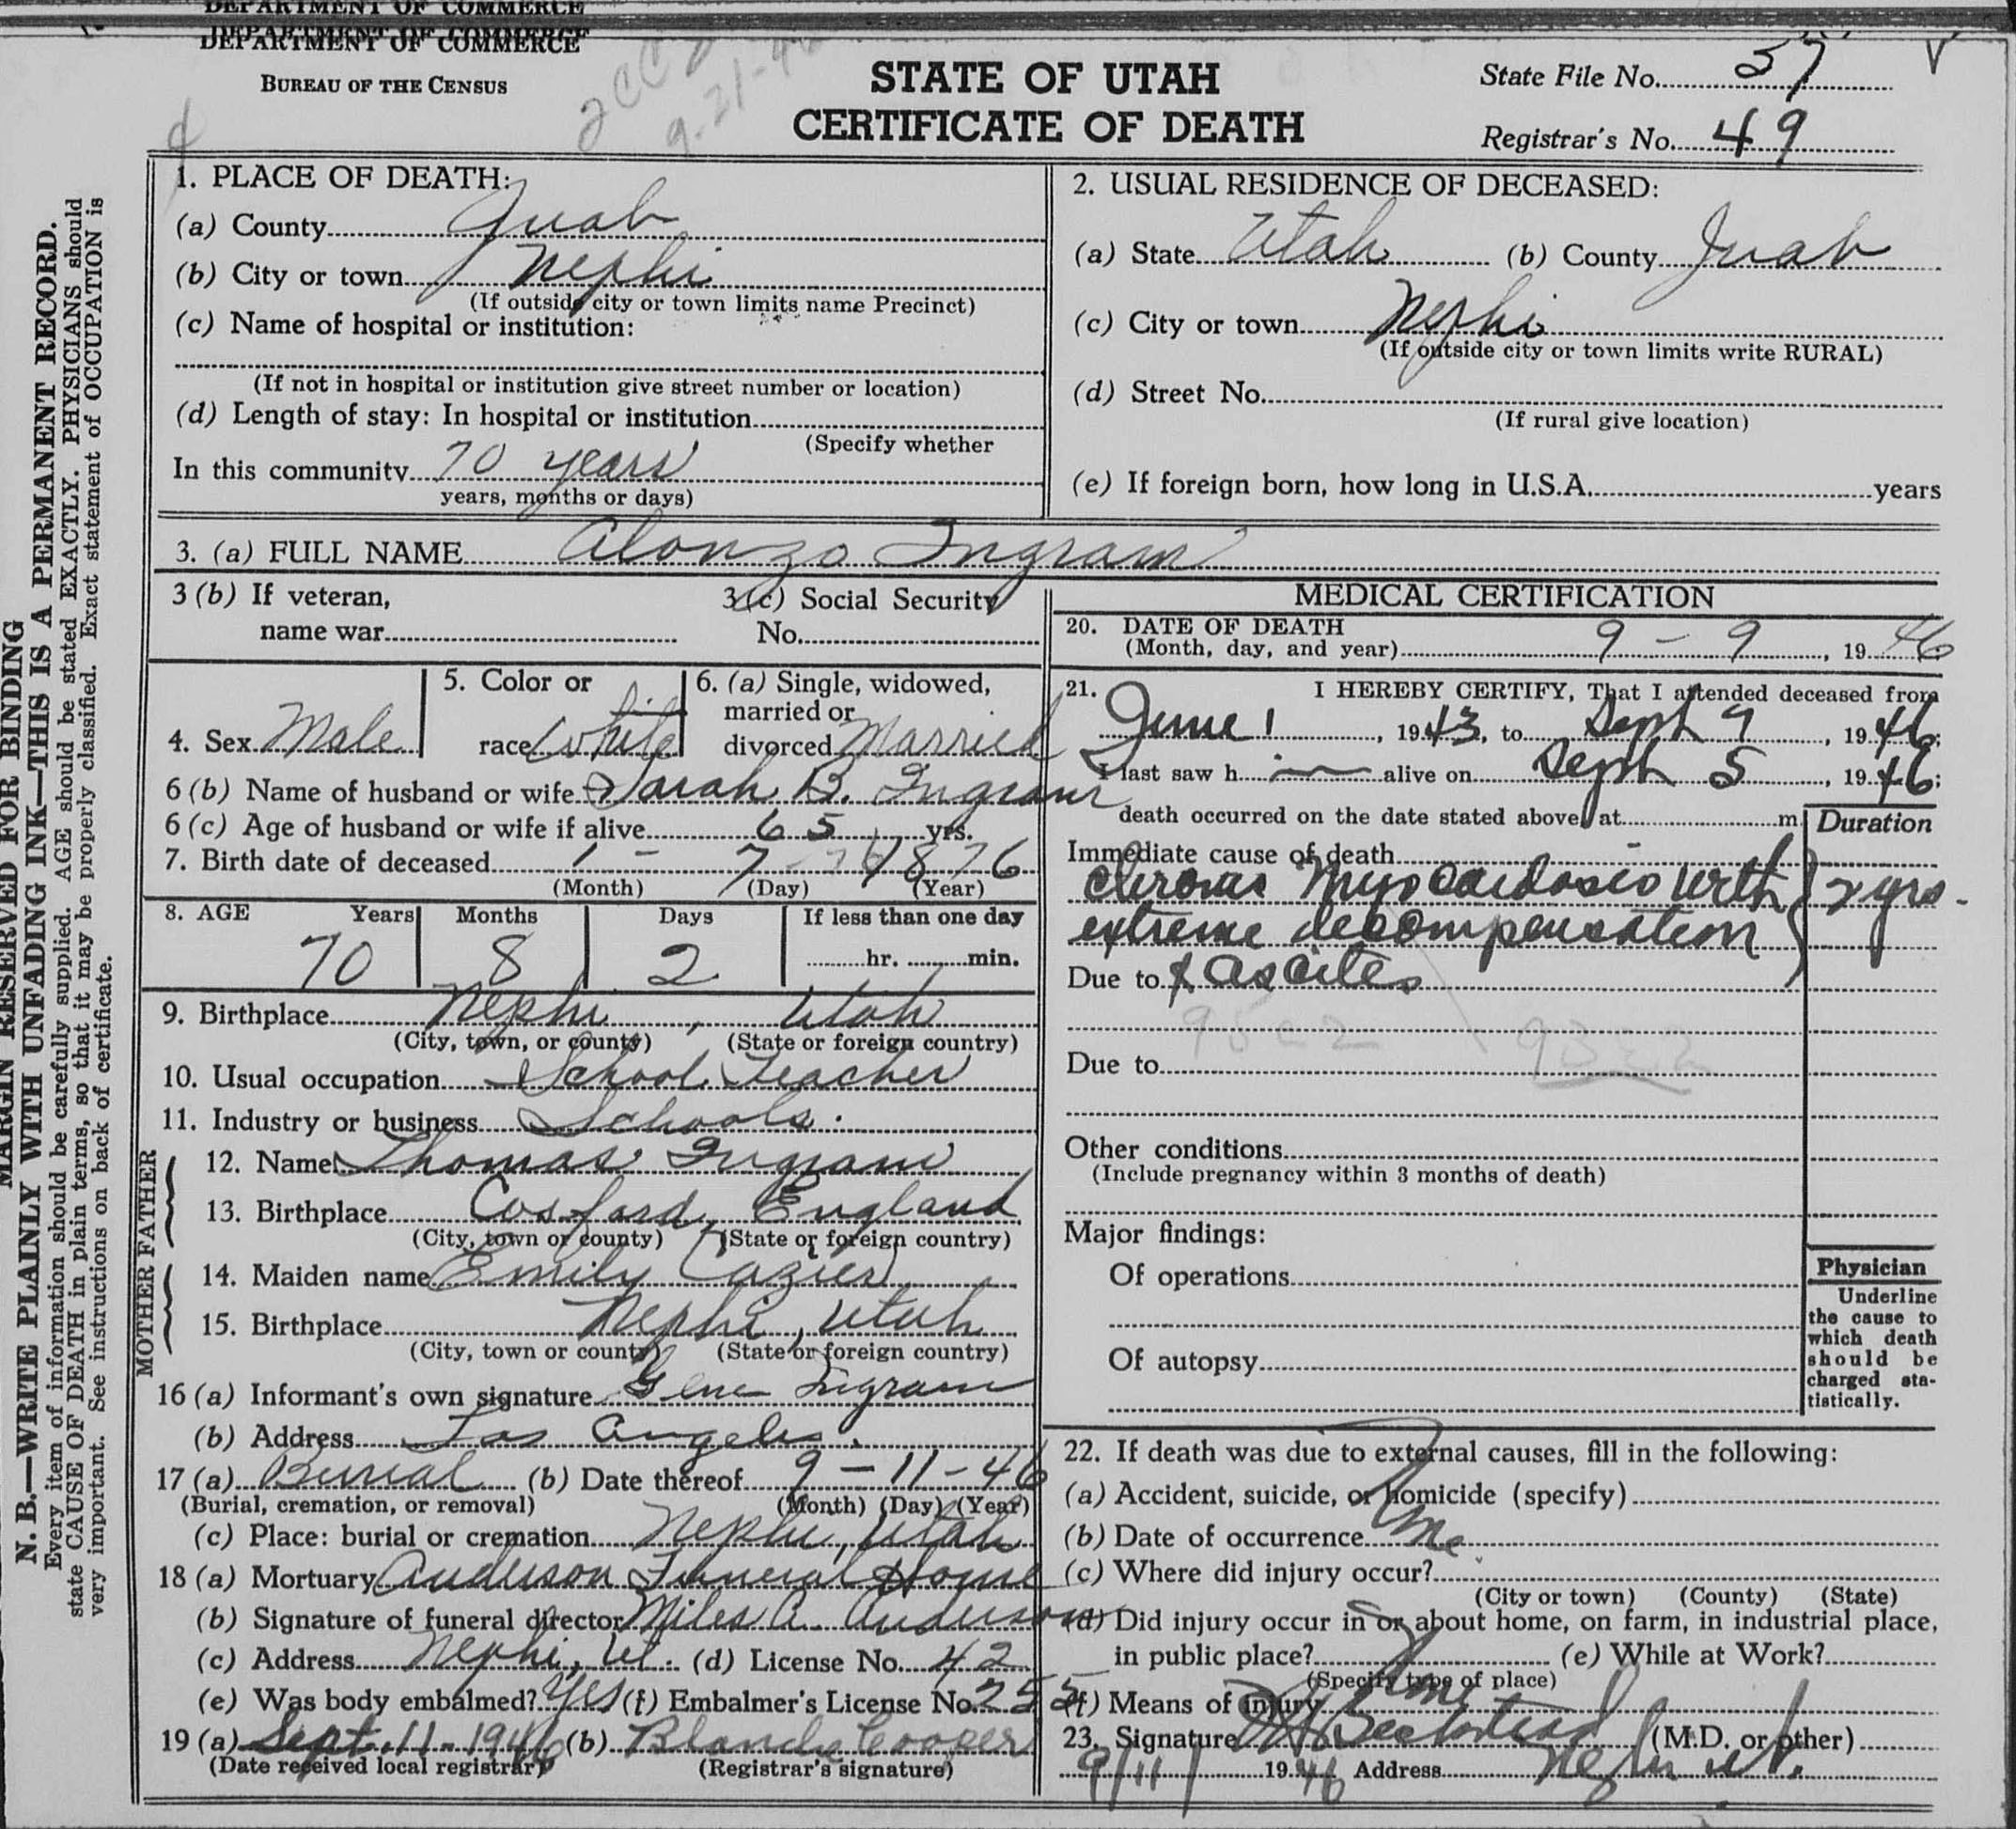 DEPARTMENT OF COMMERCE
DEPARTMENT OF COMMERCE
BUREAU OF THE CENSUS
STATE OF UTAH
CERTIFICATE OF DEATH
State File No. 57
Registrar's No. 49
MARGIN RESERVED FOR BINDING
N. B.—WRITE PLAINLY WITH UNFADING INK—THIS IS A PERMANENT RECORD.
Every item of information should be carefully supplied. AGE should be stated EXACTLY. PHYSICIANS should
state CAUSE OF DEATH in plain terms, so that it may be properly classified. Exact statement of OCCUPATION is
very important. See instructions on back of certificate.
1. PLACE OF DEATH:
(a) County Juab
(b) City or town Nephi
(If outside city or town limits name Precinct)
(c) Name of hospital or institution:
(If not in hospital or institution give street number or location)
(d) Length of stay: In hospital or institution
(Specify whether
In this community 70 years
years, months or days)
2. USUAL RESIDENCE OF DECEASED:
(a) State Utah (b) County Juab
(c) City or town Nephi
(If outside city or town limits write RURAL)
(d) Street No.
(If rural give location)
(e) If foreign born, how long in U.S.A. years
3. (a) FULL NAME Alonzo Ingram
3 (b) If veteran,
name war
3 (c) Social Security
No.
4. Sex Male
5. Color or
race White
6. (a) Single, widowed,
married or
divorced Married
6 (b) Name of husband or wife Sarah B. Ingram
6 (c) Age of husband or wife if alive 65 yrs.
7. Birth date of deceased 1 - 7 - 1876
(Month) (Day) (Year)
8. AGE Years Months Days If less than one day
70 8 2 hr. min.
9. Birthplace Nephi, Utah
(City, town, or county) (State or foreign country)
10. Usual occupation School Teacher
11. Industry or business Schools.
FATHER
12. Name Thomas Ingram
13. Birthplace Cosford, England
(City, town or county) (State or foreign country)
MOTHER
14. Maiden name Emily Cazier
15. Birthplace Nephi, Utah
(City, town or county) (State or foreign country)
16 (a) Informant's own signature Gene Ingram
(b) Address Los Angeles.
17 (a) Burial (b) Date thereof 9-11-46
(Burial, cremation, or removal) (Month) (Day) (Year)
(c) Place: burial or cremation Nephi, Utah
18 (a) Mortuary Anderson Funeral Home
(b) Signature of funeral director Miles A. Anderson
(c) Address Nephi, Ut. (d) License No. 42
(e) Was body embalmed? Yes (f) Embalmer's License No. 255
19 (a) Sept. 11-1946 (b) Cooper
(Date received local registrar) (Registrar's signature)
MEDICAL CERTIFICATION
20. DATE OF DEATH
(Month, day, and year) 9 - 9, 1946
21. I HEREBY CERTIFY, That I attended deceased from
June 1, 1943, to Sept 9, 1946;
I last saw h im alive on Sept 5, 1946;
death occurred on the date stated above at m.
Duration
Immediate cause of death
Chronic Myocardosis with 2 yrs.
extreme decompensation
Due to & ascites
Due to
Other conditions
(Include pregnancy within 3 months of death)
Major findings:
Of operations
Of autopsy
Physician
Underline
the cause to
which death
should be
charged sta-
tistically.
22. If death was due to external causes, fill in the following:
(a) Accident, suicide, or homicide (specify)
(b) Date of occurrence
(c) Where did injury occur?
(City or town) (County) (State)
(d) Did injury occur in or about home, on farm, in industrial place,
in public place? (e) While at Work?
(Specify type of place)
(f) Means of injury
23. Signature Beckstead (M.D. or other)
9/11 1946 Address Nephi Ut.